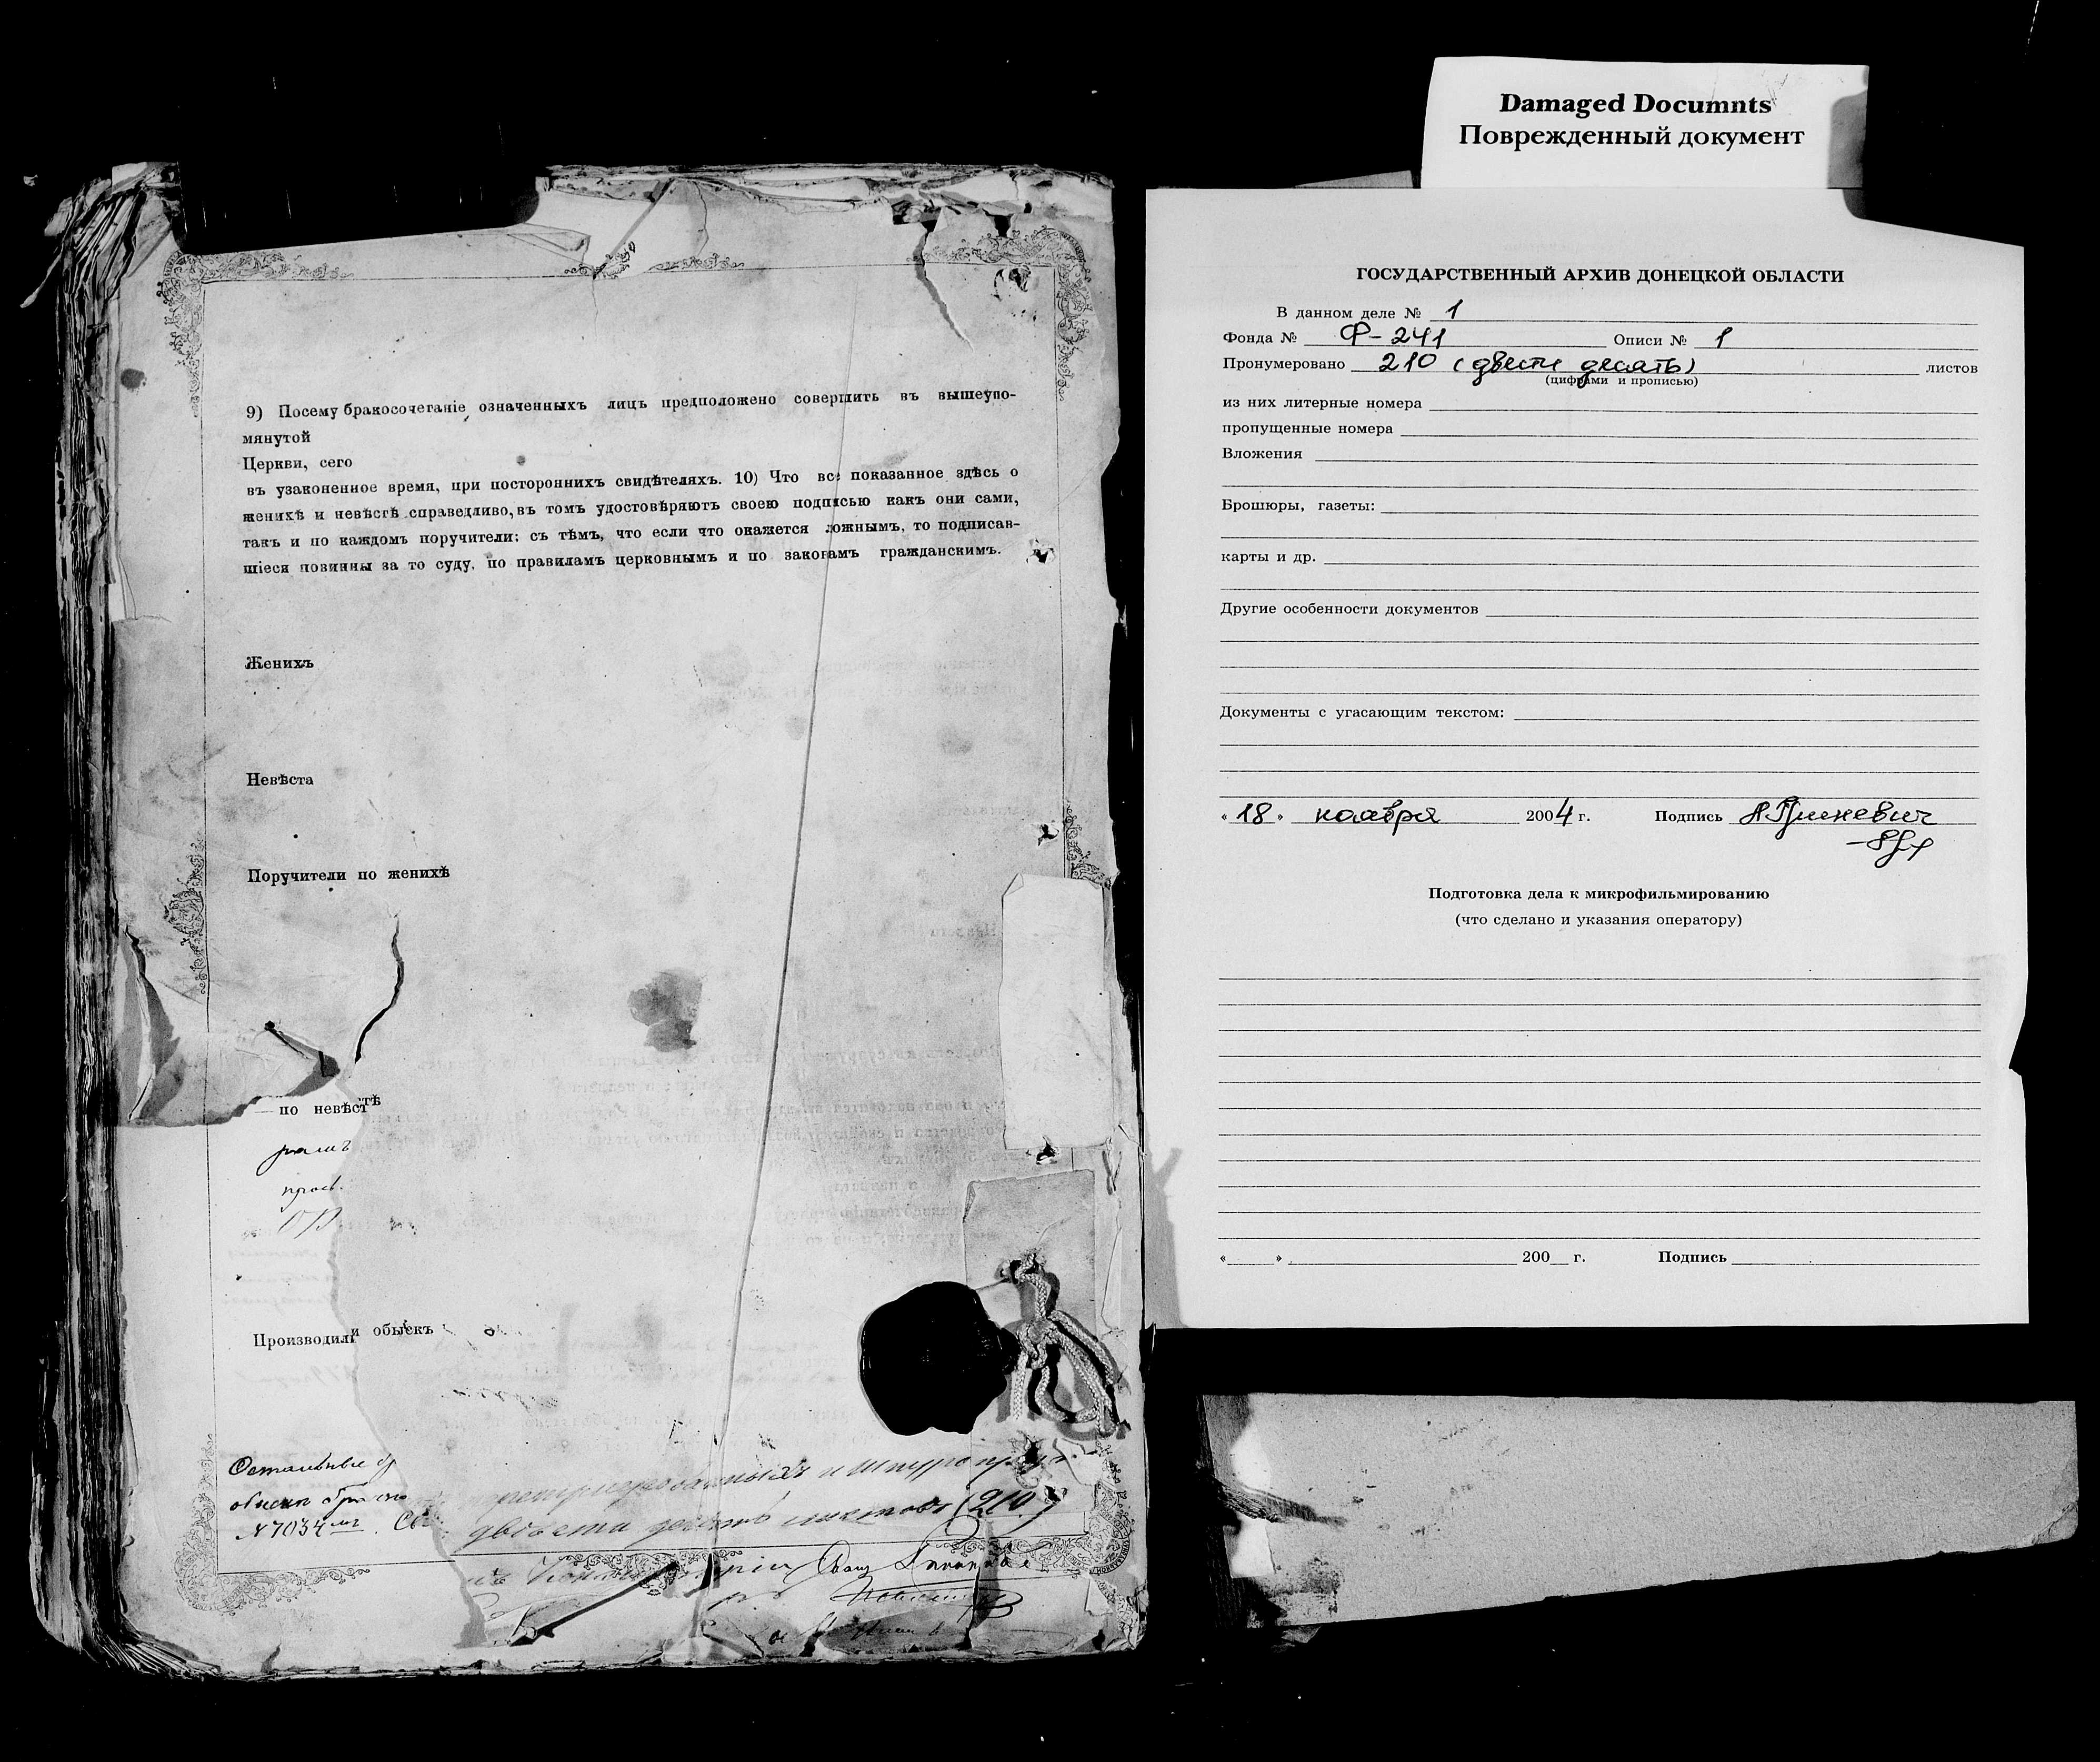 Damaged Documnts
Поврежденный документ
9) Посему бракосочетаніе означенныхъ лицъ предположено совершить въ вышеупо-
мянутой
Церкви, сего
въ узаконенное время, при постороннихъ свидѣтеляхъ. 10) Что все показанное здѣсь о
женихѣ и невѣстѣ справедливо, въ томъ удостовѣряютъ своею подписью какъ они сами,
такъ и по каждомъ поручители; съ тѣмъ, что если что окажется ложнымъ, то подписав-
шіеся повинны за то суду, по правиламъ церковнымъ и по законамъ гражданскимъ.
Женихъ
Невѣста
Поручители по женихѣ
— по невѣстѣ
Производили обыскъ
№ 7034
двѣсти десять листовъ (210)
ГОСУДАРСТВЕННЫЙ АРХИВ ДОНЕЦКОЙ ОБЛАСТИ
В данном деле № 1
Фонда № Ф-241 Описи № 1
Пронумеровано 210 (двести десять) листов
(цифрами и прописью)
из них литерные номера
пропущенные номера
Вложения
Брошюры, газеты:
карты и др.
Другие особенности документов
Документы с угасающим текстом:
«18» ноября 2004 г. Подпись
Подготовка дела к микрофильмированию
(что сделано и указания оператору)
« » 200 г. Подпись